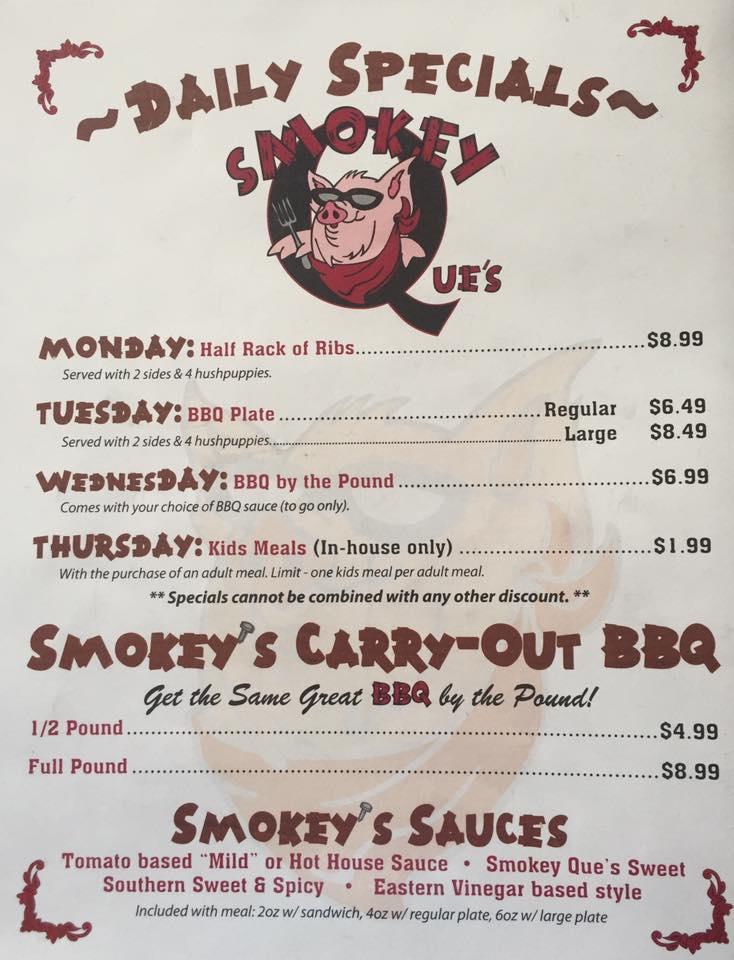 ~DAILY SPECIALS~
SMOKEY
QUE'S
MONDAY: Half Rack of Ribs..........$8.99
Served with 2 sides & 4 hushpuppies.
TUESDAY: BBQ Plate..........Regular $6.49
Served with 2 sides & 4 hushpuppies..........Large $8.49
WEDNESDAY: BBQ by the Pound..........$6.99
Comes with your choice of BBQ sauce (to go only).
THURSDAY: Kids Meals (In-house only)..........$1.99
With the purchase of an adult meal. Limit - one kids meal per adult meal.
** Specials cannot be combined with any other discount. **
SMOKEY'S CARRY-OUT BBQ
Get the Same Great BBQ by the Pound!
1/2 Pound..........$4.99
Full Pound..........$8.99
SMOKEY'S SAUCES
Tomato based "Mild" or Hot House Sauce • Smokey Que's Sweet
Southern Sweet & Spicy • Eastern Vinegar based style
Included with meal: 2oz w/ sandwich, 4oz w/ regular plate, 6oz w/ large plate